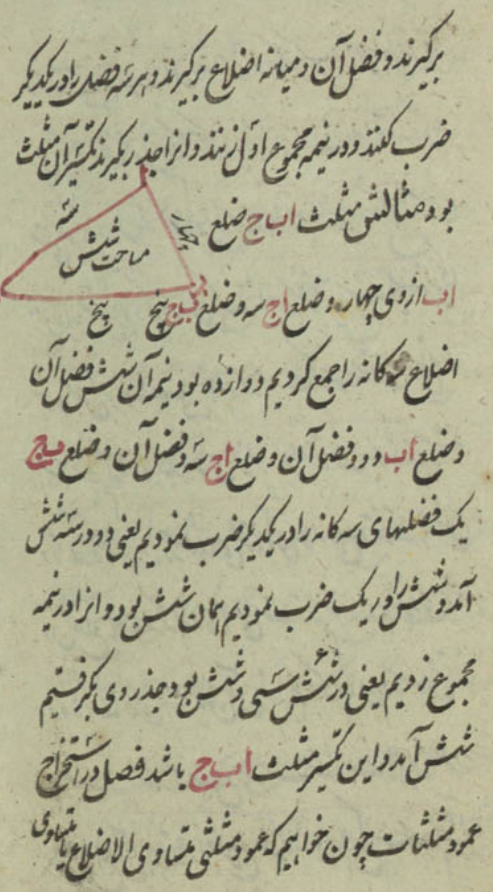 برگیرند و فضل آن و میانه اضلاع برگیرند و هر سه فضل را در یکدیگر
ضرب کنند و در نیمه مجموع اول زنند و انرا جذر برگیرند تکسیر آن مثلث
بود مثالش مثلث اب ج ضلع
چهار
سه
مساحت شش
اب ازوی چهار و ضلع اج سه و ضلع ب ج پنج
پنج
اضلاع سه کانه را جمع کردیم دوازده بود نیمه آن شش فضل آن
و ضلع اب دو و فضل آن و ضلع اج سه و فضل آن و ضلع ب ج
یک فضلهای سه کانه را در یکدیگر ضرب نمودیم یعنی دو در سه شش
آمد و شش را در یک ضرب نمودیم همان شش بود و انرا در نیمه
مجموع زدیم یعنی در شش سی و شش بود جذر وی بگرفتیم
شش آمد و این تکسیر مثلث اب ج باشد فصل در استخراج
عمود مثلثات چون خواهیم که عمود مثلثی متساوی الاضلاع یا متساوی